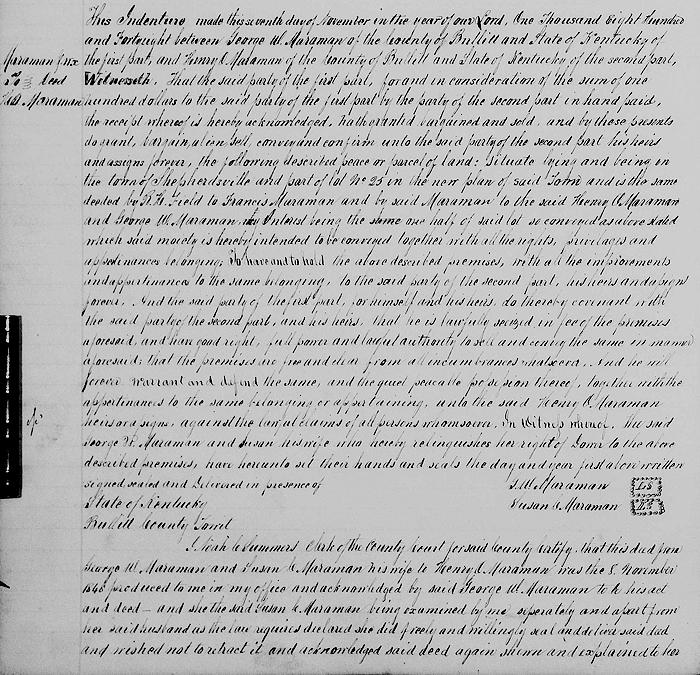 This Indenture made this seventh day of November in the year of our Lord, One Thousand Eight Hundred
and Fortyeight between George W. Maraman of the County of Bullitt and State of Kentucky of
the first part, and Henry C. Maraman of the County of Bullitt and State of Kentucky of the second part,
Maraman & Wx
To deed
Maraman
Witnesseth. That the said party of the first part, for and in consideration of the sum of one
hundred dollars to the said party of the first part by the party of the second part in hand paid,
the receipt whereof is hereby acknowledged, hath granted bargained and sold, and by these presents
do grant, bargain, alien, sell, convey and confirm unto the said party of the second part his heirs
and assigns forever, the following described peace or parcel of land: Situate lying and being in
the town of Shepherdsville and part of lot No 25 in the new plan of said Town and is the same
deeded by R. H. Field to Francis Maraman and by said Maraman to the said Henry C. Maraman
and George W. Maraman, Interest being the same one half of said lot so conveyed as above stated
which said moiety is hereby intended to be conveyed together with all the rights, privilages and
appertenances belonging; To have and to hold the above described premises, with all the improvements
and appertenances to the same belonging, to the said party of the second part, his heirs and assigns
forever, And the said party of the first part, for himself and his heirs, do hereby covenant with
the said party of the second part, and his heirs, that he is lawfully seized in fee of the premises
aforesaid, and have good right, full power and lawful authority to sell and convey the same in manner
aforesaid; that the premises are free and clear from all incumbrances whatsoever. And he will
forever warrant and defend the same, and the quiet peacable possession thereof, together with the
appertenances to the same belonging or appertaining, unto the said Henry C. Maraman
heirs or assigns, against the lawful claims of all persons whomsoever. In Witness whereof the said
George W. Maraman and Susan his wife who hereby relinquishes her right of Dower to the above
described premises, have hereunto set their hands and seals the day and year first above written
signed sealed and Delivered in presence of
G. W. Maraman LS
Susan C Maraman LS
State of Kentucky
Bullitt County Towit
I Noah C Summers Clerk of the County Court for said County Certify, that this deed from
George W. Maraman and Susan C. Maraman his wife to Henry C. Maraman was the 8. November
1848 produced to me in my office and acknowledged by said George W. Maraman to be his act
and deed — and she the said Susan C. Maraman being examined by me seperately and apart from
her said husband as the law requires declared she did freely and willingly seal and deliver said deed
and wished not to retract it and acknowledged said deed again shown and explained to her